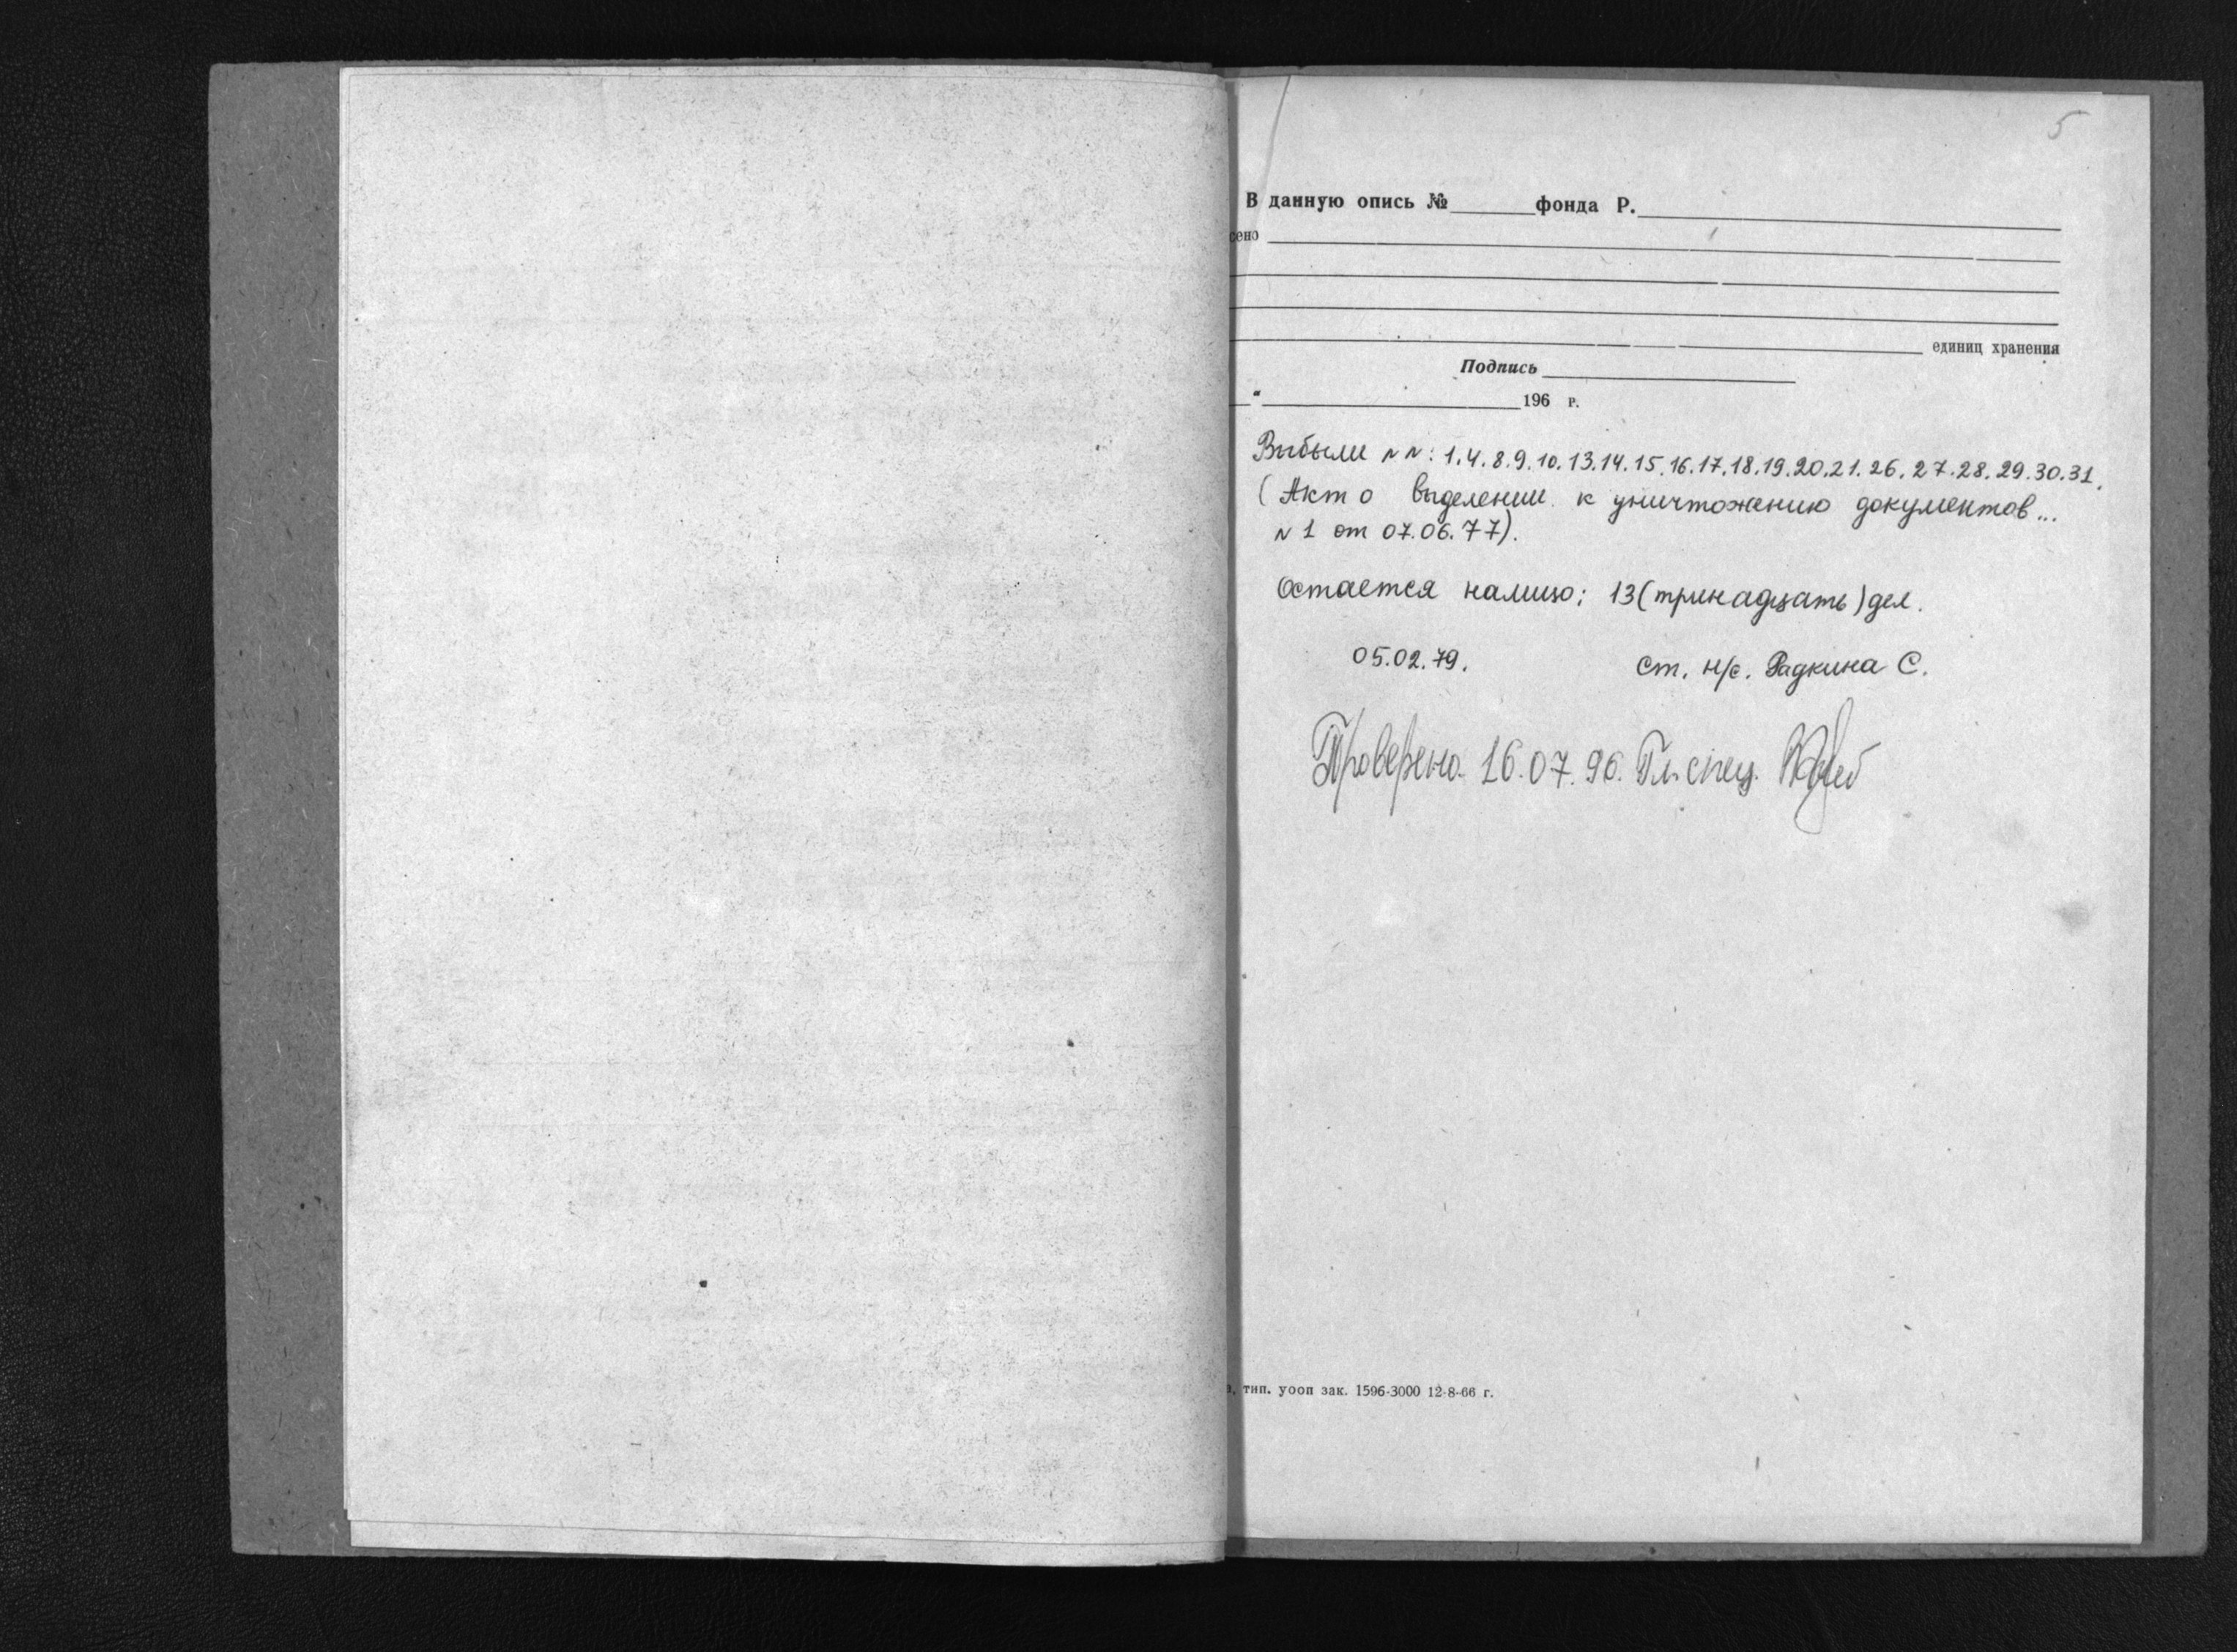 5
В данную опись № фонда Р.
сено
единиц хранения
Подпись
"
196 р.
Выбыли N N: 1.4.8.9.10.13.14.15.16.17.18.19.20.21.26.27.28.29.30.31.
(Акт о выделении к уничтожению документов...
N 1 от 07.06.77).
Остается налицо: 13 (тринадцать) дел.
05.02.79. Ст. н/с. Радкина С.
Проверено 16.07.96. Гл. спец.
тип. уооп зак. 1596-3000 12-8-66 г.